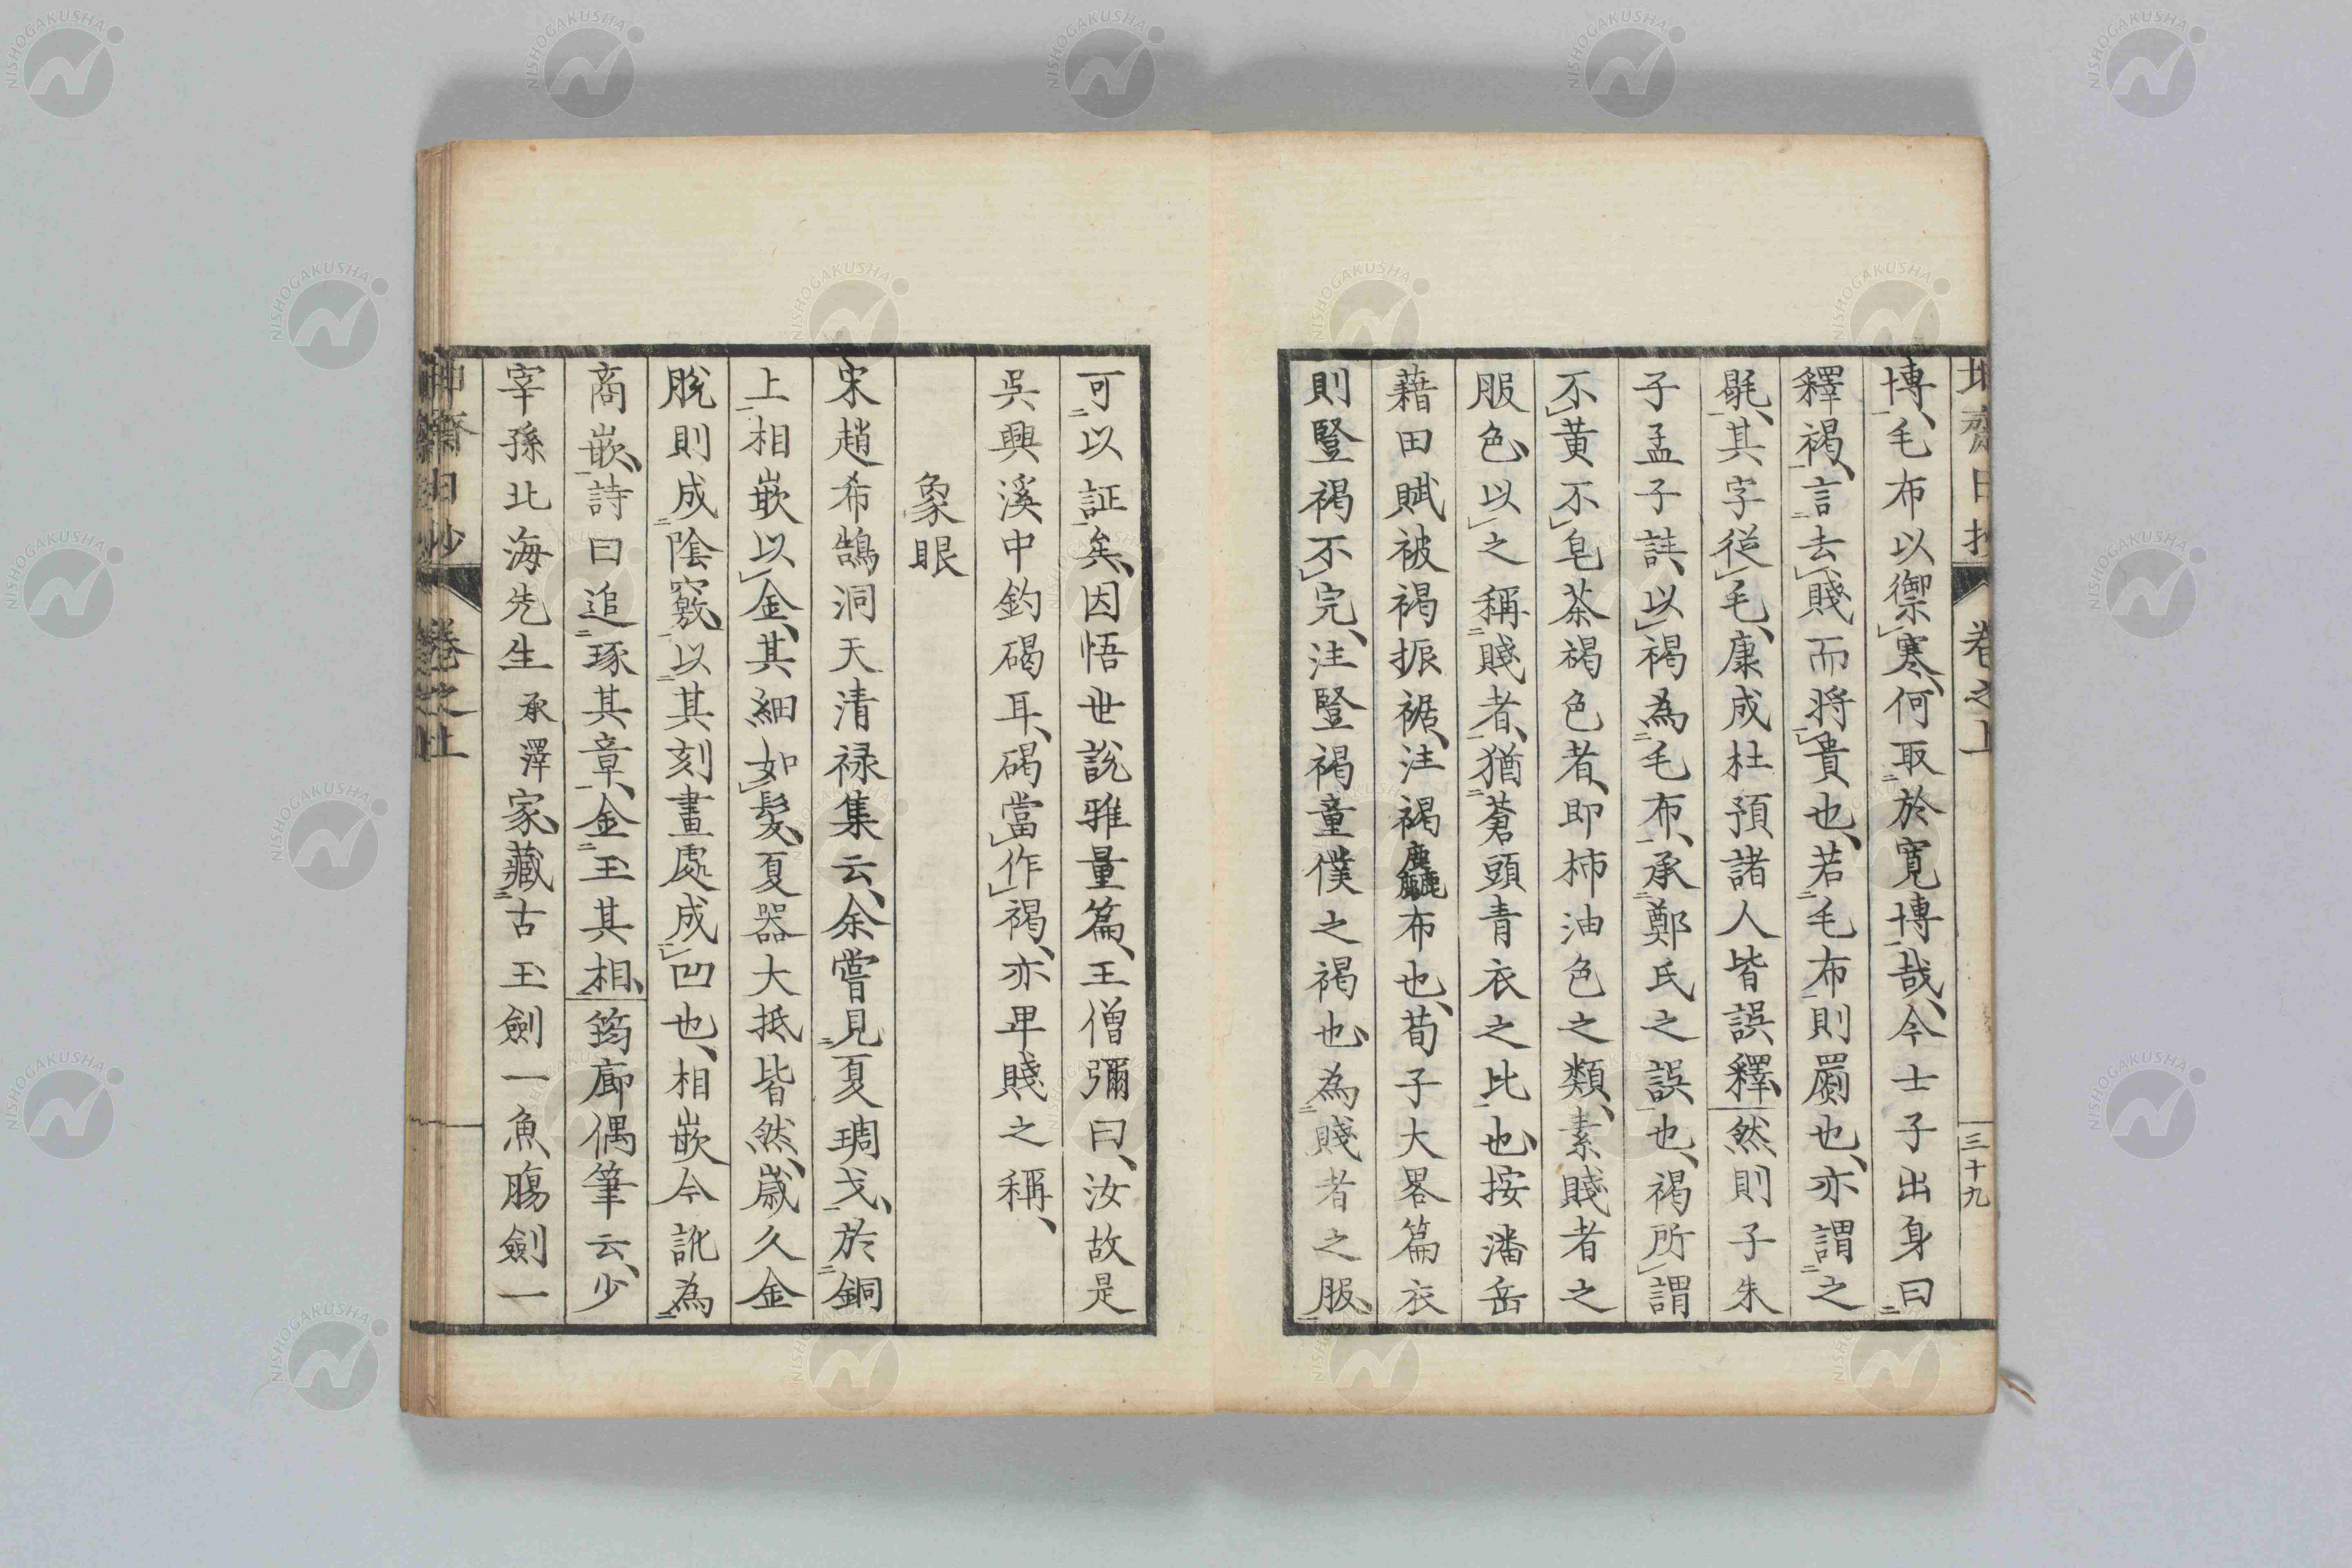 博、毛布以禦寒、何取於寬博哉、今士子出身曰
釋褐、言去賤而將貴也、若毛布則罽也、亦謂之
毼、其字從毛、康成杜預諸人皆誤釋、然則子朱
子孟子註、以褐為毛布、承鄭氏之誤也、褐所謂
不黄不皂茶褐色者、即柿油色之類、素賤者之
服色、以之稱賤者、猶蒼頭青衣之比也、按潘岳
藉田賦被褐振裾、注褐麤布也、荀子大畧篇衣
則豎褐不完、注豎褐童僕之褐也、為賤者之服、
三十九
可以証矣、因悟世說雅量篇、王僧彌曰、汝故是
吳興溪中釣碣耳、碣當作褐、亦卑賤之稱、
象眼
宋趙希鵠洞天清祿集云、余嘗見夏琱戈、於銅
上相嵌以金、其細如髮、夏器大抵皆然、歲久金
脫則成陰竅、以其刻畫處成凹也、相嵌今訛為
商嵌、詩曰追琢其章、金玉其相、筠廊偶筆云、少
宰孫北海先生承澤家、藏古玉劍一魚腸劍一
卷之上